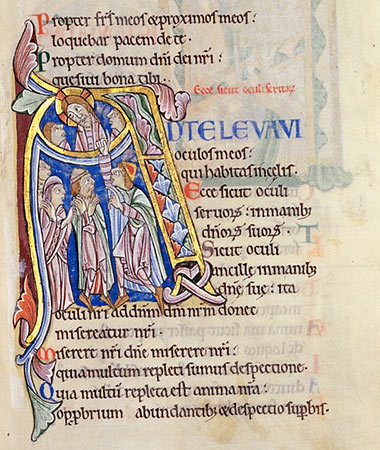 Propter fr̄s meos & proximos meos:
loquebar pacem de te.
Propter domum dn̄i dei nr̄i:
quesiui bona tibi.
Ecce sicut oculi seruorꝝ
ADTE LEVAVI
oculos meos:
qui habitas incelis.
Ecce sicut oculi
seruorꝝ: inmanibꝫ
dn̄orꝝ suorꝝ.
Sicut oculi
ancille inmanibꝫ
dn̄e suę: ita
oculi nr̄i addn̄m dm̄ nr̄m donec
misereatur nr̄i.
Miserere nr̄i dn̄e miserere nr̄i:
quia multum repleti sumus despectione.
Quia multū repleta est anima nr̄a:
opprobrium abundantibꝫ & despectio suꝑbis.